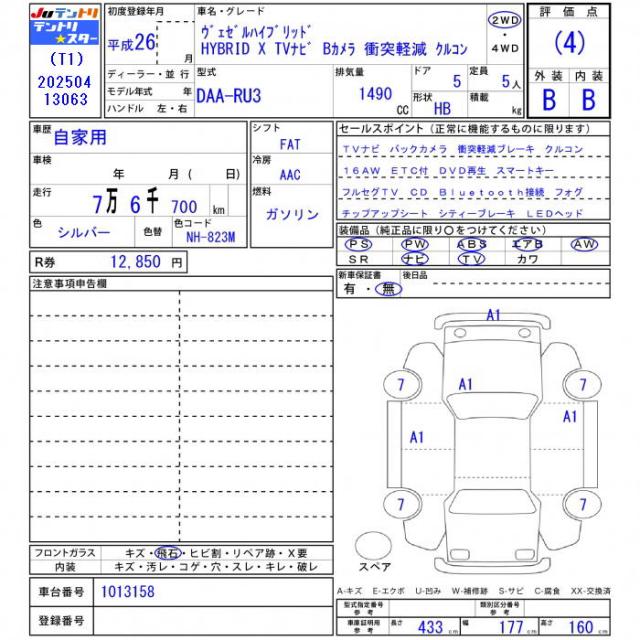 JUテントリ
テントリ
★スター
(T1)
202504
13063
初度登録年月
平成26 年 月
ディーラー・並行
モデル年式 年
ハンドル 左・右
車名・グレード
ヴェゼルハイブリッド
HYBRID X TVナビ Bカメラ 衝突軽減 クルコン
2WD
・
4WD
型式
DAA-RU3
排気量
1490
CC
ドア
5
定員
5人
形状
HB
積載
kg
評価点
(4)
外装 内装
B B
車歴
自家用
車検
年 月( 日)
走行
7万 6千 700 km
色
シルバー
色替
色コード
NH-823M
シフト
FAT
冷房
AAC
燃料
ガソリン
R券 12,850 円
セールスポイント(正常に機能するものに限ります)
TVナビ バックカメラ 衝突軽減ブレーキ クルコン
16AW ETC付 DVD再生 スマートキー
フルセグTV CD Bluetooth接続 フォグ
チップアップシート シティーブレーキ LEDヘッド
装備品(純正品に限り○をつけてください)
PS PW ABS エアB AW
SR ナビ TV カワ
新車保証書
有・無
後日品
注意事項申告欄
A1
7 A1 7
A1 A1
7 7
スペア
フロントガラス キズ・飛石・ヒビ割・リペア跡・X要
内装 キズ・汚レ・コゲ・穴・スレ・キレ・破レ
車台番号 1013158
登録番号
A-キズ E-エクボ U-凹み W-補修跡 S-サビ C-腐食 XX-交換済
型式指定番号
参考
類別区分番号
参考
車庫証明用
参考
長さ 433 cm 幅 177 cm 高さ 160 cm